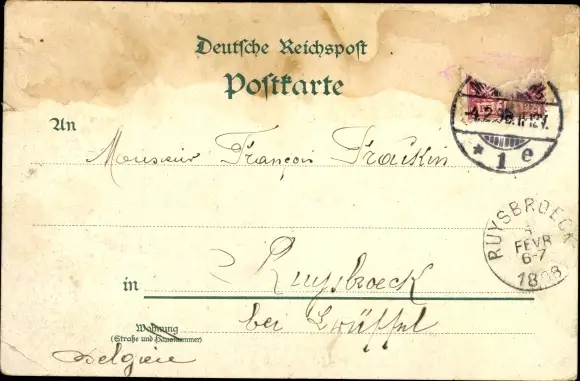 Deutsche Reichspost
Postkarte
An
Monsieur François
in Ruysbroeck
bei Brüssel
Wohnung
(Straße und Hausnummer)
Belgien
-4.2.98. 11-12V.
* 1 e
RUYSBROECK
FEVR
6-7
1898